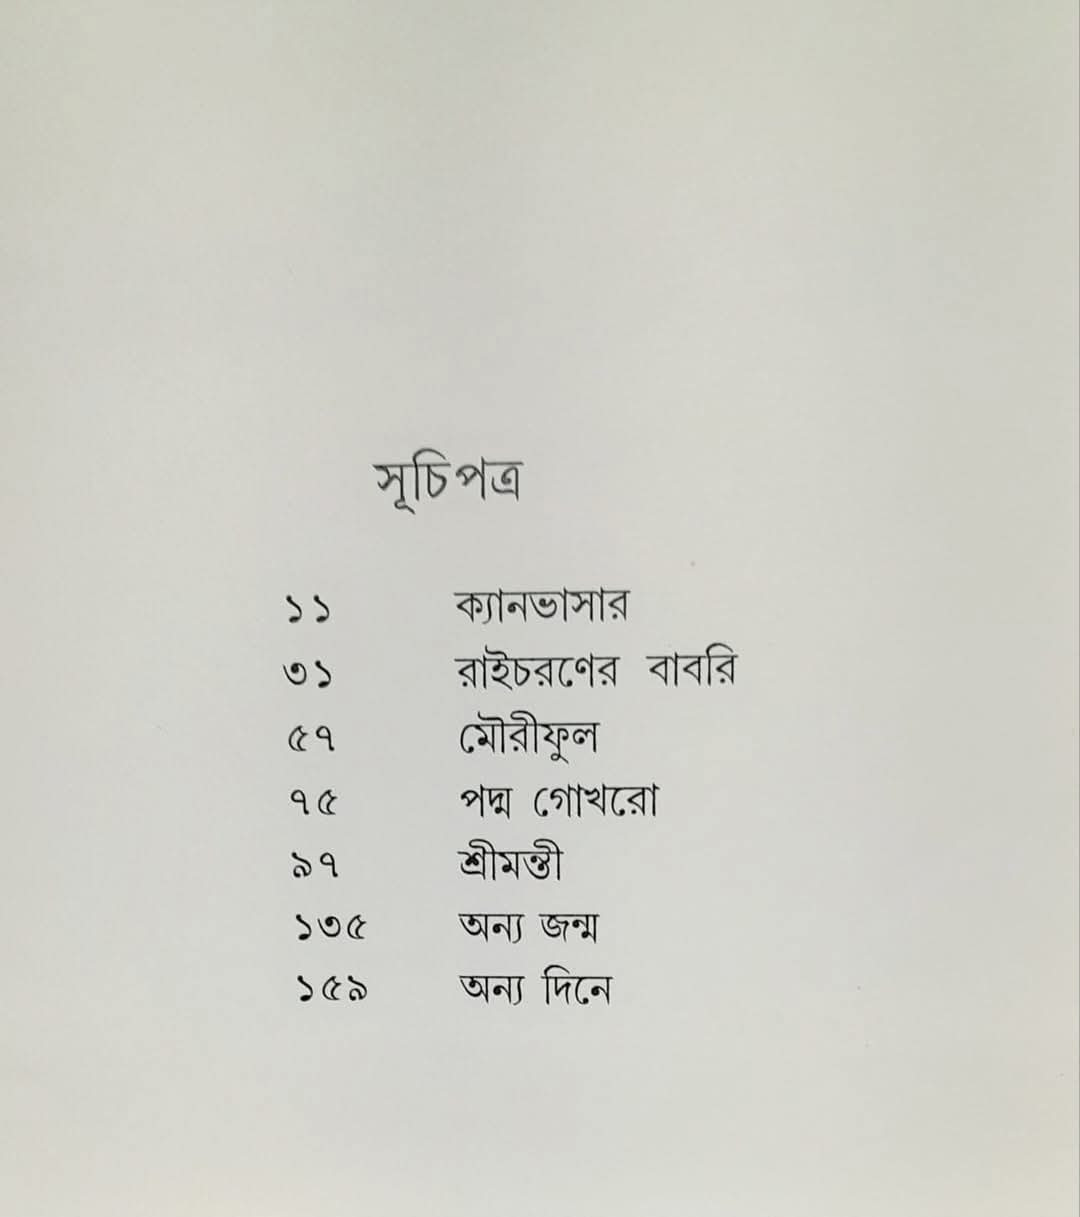 সূচিপত্র
১১ ক্যানভাসার
৩১ রাইচরণের বাবরি
৫৭ মৌরীফুল
৭৫ পদ্ম গোখরো
৯৭ শ্রীমন্তী
১৩৫ অন্য জন্ম
১৫৯ অন্য দিনে